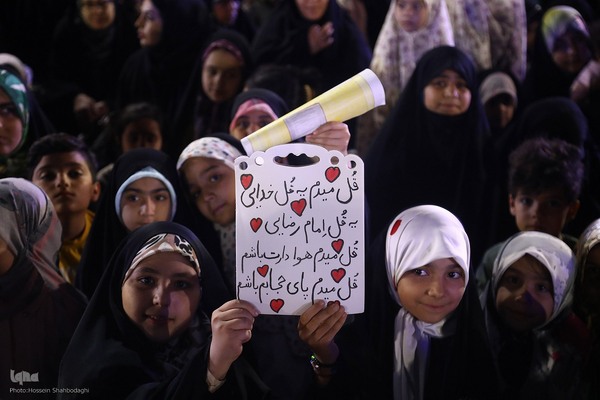 قُل میدم یه قُل خدایی
یه قُل امام رضایی
قُل میدم هوا دارت باشم
قُل میدم پای حجابم باشم
iqna
Photo:Hossein Shahbodaghi